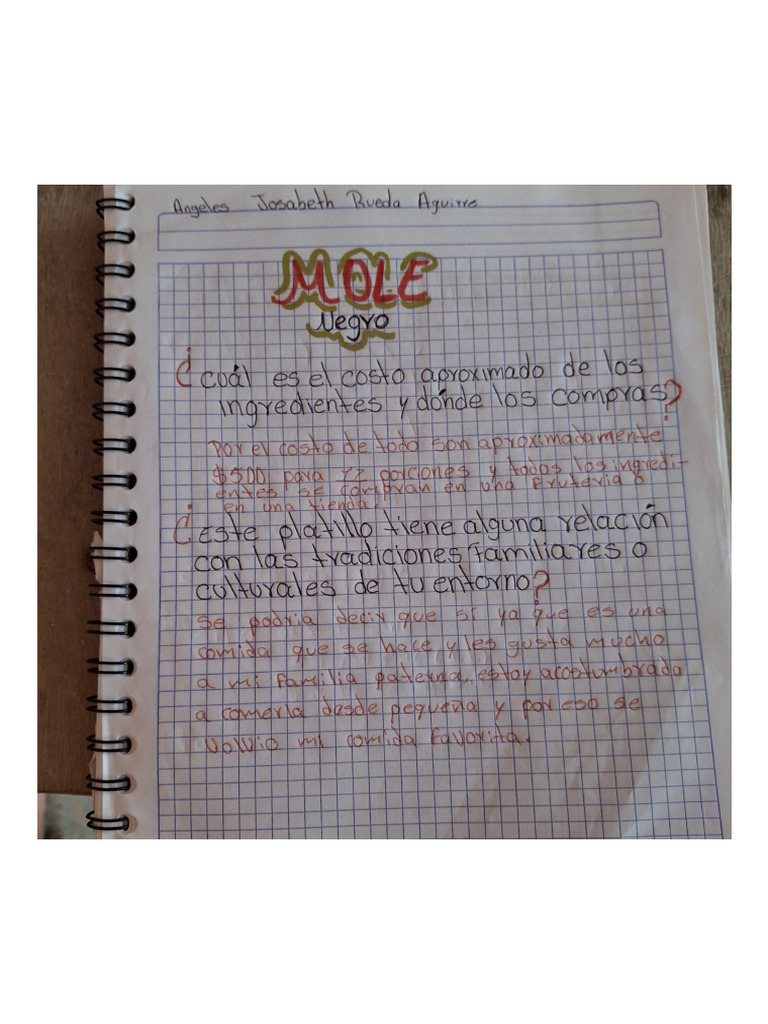 Angeles Josabeth Rueda Aguirre
MOLE
Negro
¿cuál es el costo aproximado de los
ingredientes y dónde los compras?
Por el costo de todo son aproximadamente
$500 para 12 porciones y todos los ingredi-
entes se compran en una fruteria o
en una tienda.
¿Este platillo tiene alguna relación
con las tradiciones familiares o
culturales de tu entorno?
se podria decir que si ya que es una
comida que se hace y les gusta mucho
a mi familia paterna, estoy acostumbrada
a comerla desde pequeña y por eso se
volvio mi comida favorita.